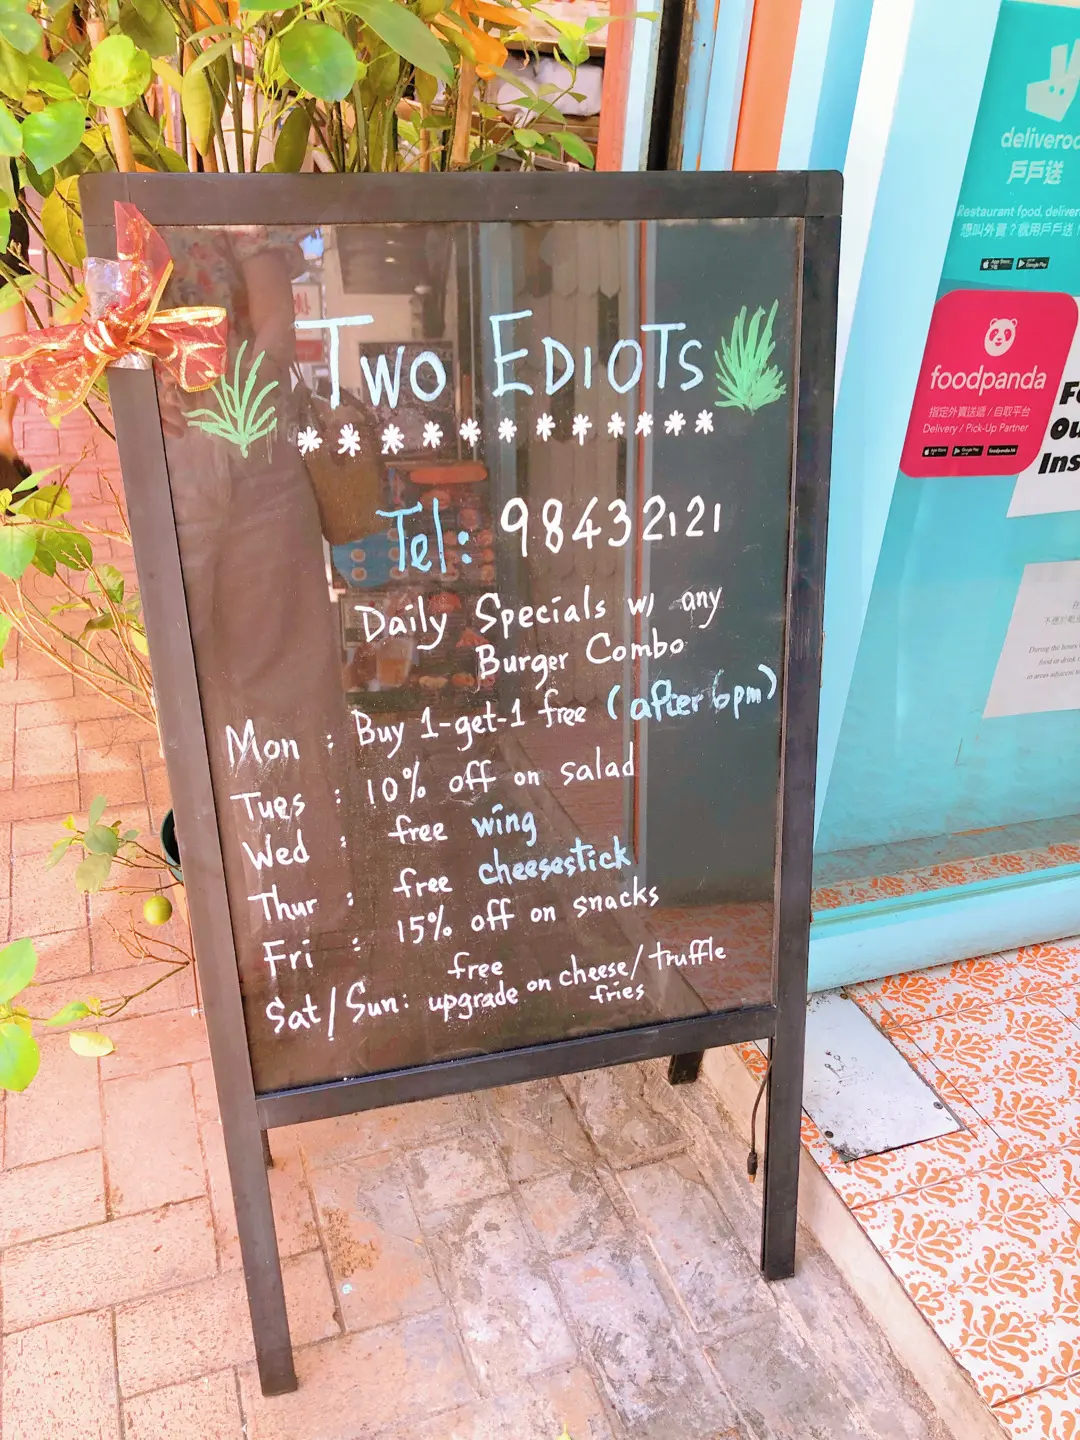 TWO EDIOTS
* * * * * * * * * * *
Tel: 98432121
Daily Specials w/ any
Burger Combo
Mon : Buy 1-get-1 free (after 6pm)
Tues : 10% off on salad
Wed : free wing
Thur : free cheesestick
Fri : 15% off on snacks
Sat/Sun: free upgrade on cheese/truffle
fries
deliveroo
戶戶送
Restaurant food, deliver
想叫外賣？就用戶戶送！
App Store
Google Play
foodpanda
指定外賣速遞 / 自取平台
Delivery / Pick-Up Partner
App Store
Google Play
foodpanda.hk
Ou
Ins
During the hours
food or drink
in areas adjacent